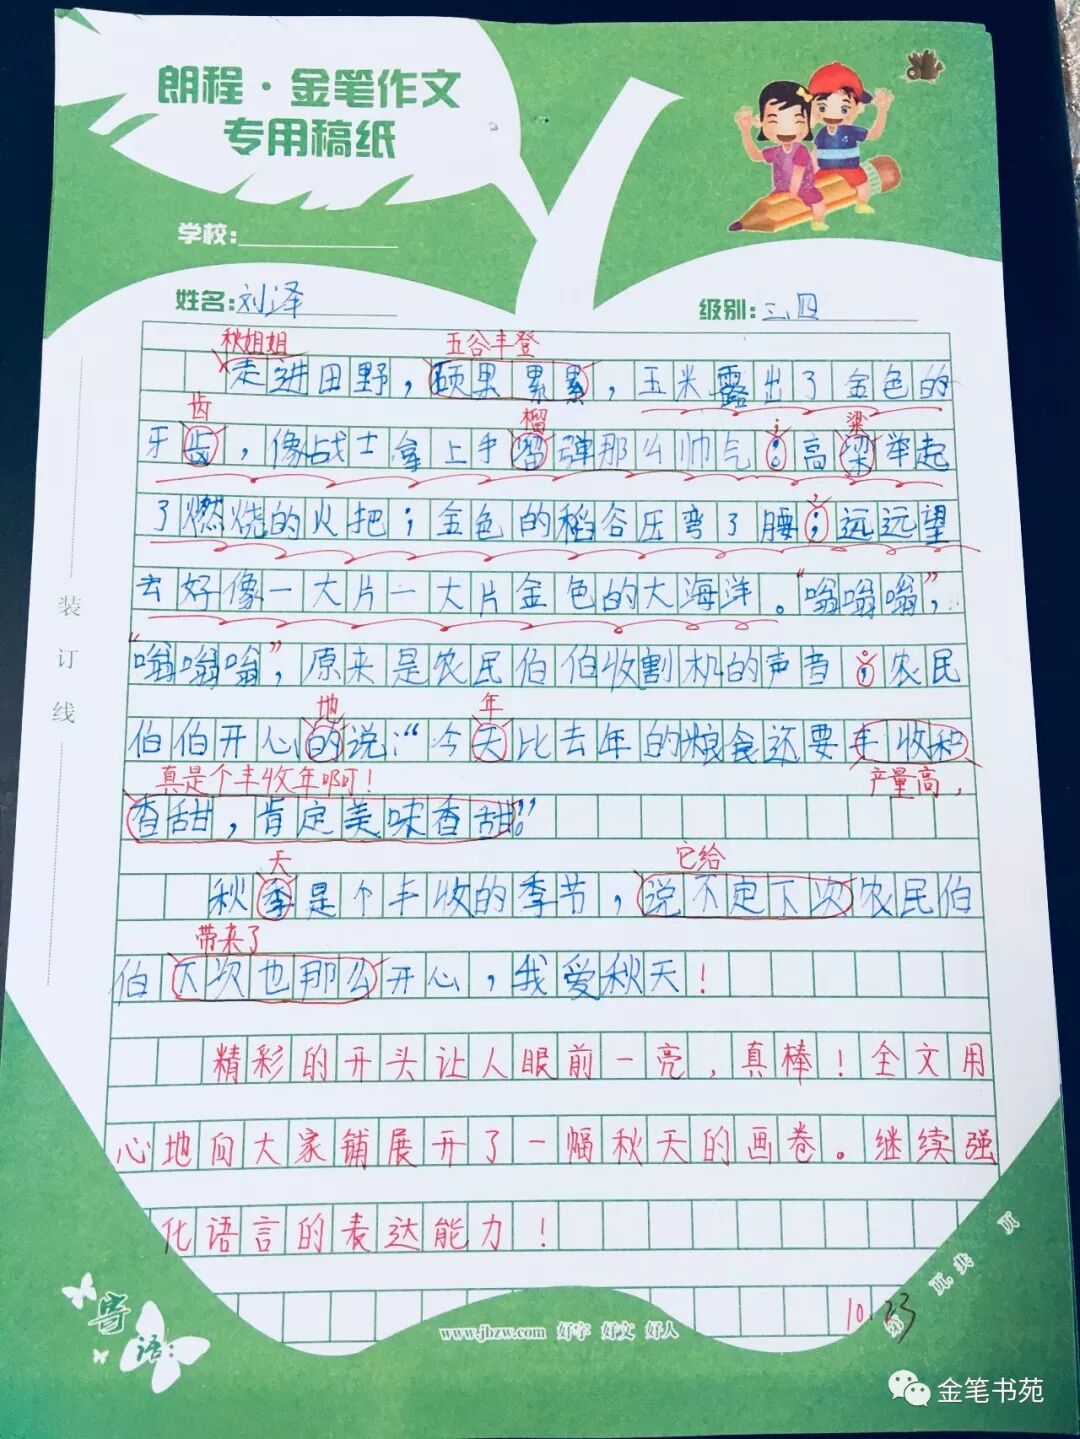 朗程·金笔作文
专用稿纸
学校:
姓名:刘泽
级别:三、四
秋姐姐 五谷丰登
走进田野，硕果累累，玉米露出了金色的
齿 榴 ； 粱
牙齿，像战士拿上手溜弹那么帅气。高梁举起
了燃烧的火把；金色的稻谷压弯了腰；远远望
去好像一大片一大片金色的大海洋。“嗡嗡嗡”，
“嗡嗡嗡”，原来是农民伯伯收割机的声音。农民
地 年
伯伯开心的说：“今天比去年的粮食还要丰收和
真是个丰收年啊！ 产量高，
香甜，肯定美味香甜。”
天 它给
秋季是个丰收的季节，说不定下次农民伯
带来了
伯下次也那么开心，我爱秋天！
精彩的开头让人眼前一亮，真棒！全文用
心地向大家铺展开了一幅秋天的画卷。继续强
化语言的表达能力！
10.23
装
订
线
寄语:
www.jbzw.com 好字 好文 好人
第 页,共 页
金笔书苑